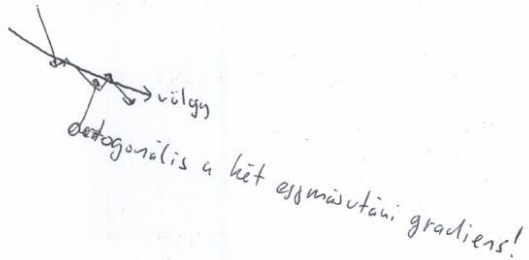 völgy
ortogonális a két egymásutáni gradiens!